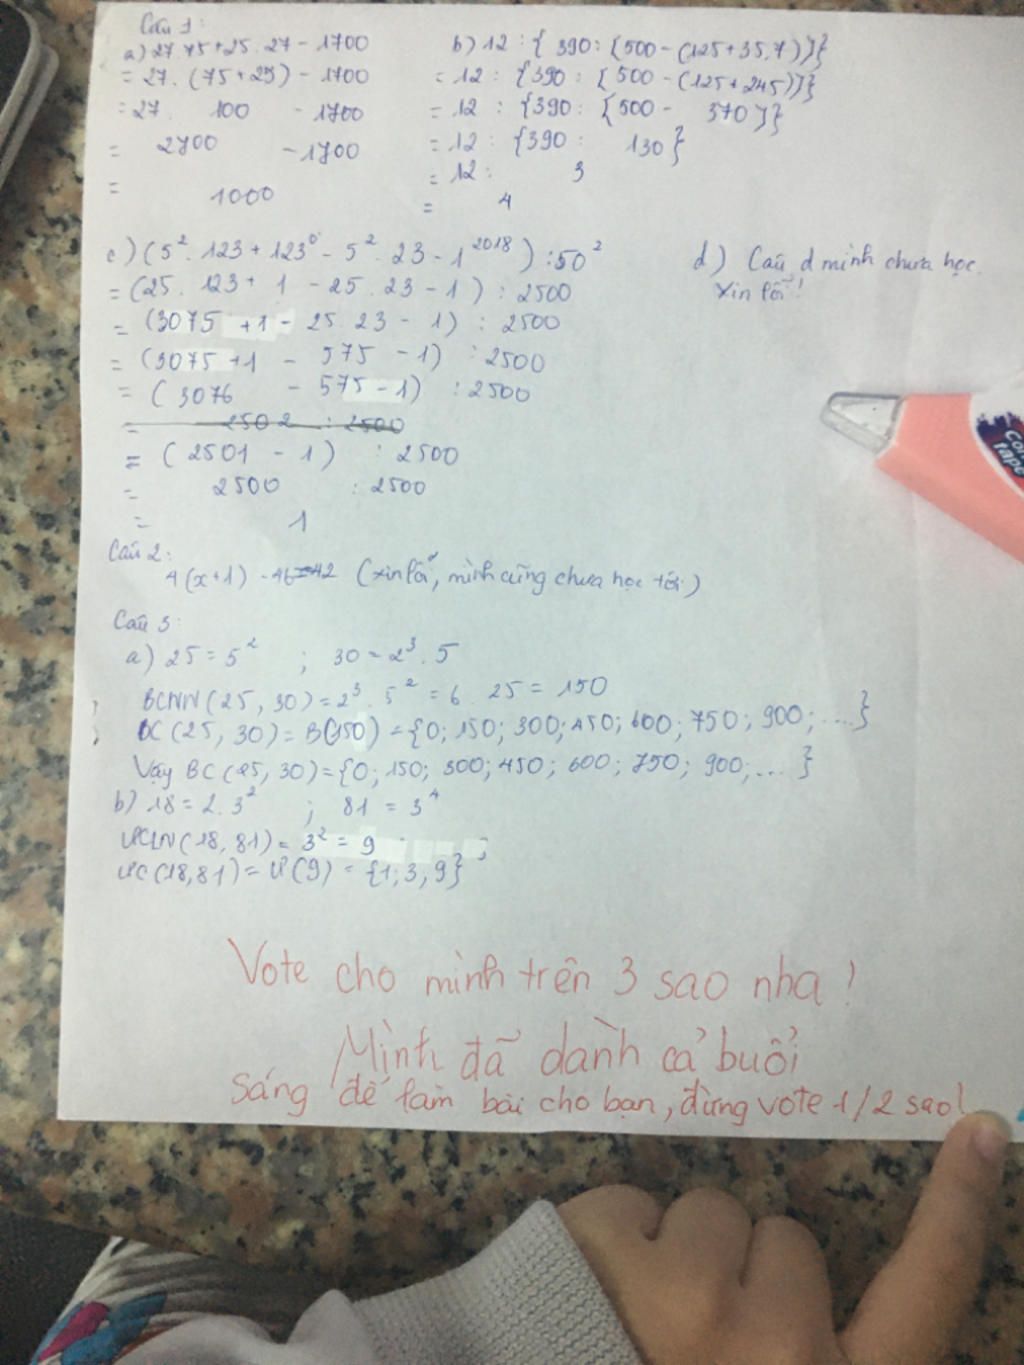 Câu 1:
a) 27.75+25.27-1700
= 27.(75+25) - 1700
= 27. 100 - 1700
= 2700 - 1700
= 1000
b) 12:{390:[500-(125+35.7)]}
= 12: {390: [500-(125+245)]}
= 12 : {390: [500- 370]}
= 12: {390: 130}
= 12: 3
= 4
c) (5².123+123⁰-5².23-1²⁰¹⁸):50²
= (25.123+1-25.23-1):2500
= (3075+1-25.23-1):2500
= (3075+1 - 575-1):2500
= (3076 - 575-1):2500
= 2502 : 2500
= (2501-1) : 2500
= 2500 : 2500
= 1
d) Câu d mình chưa học.
Xin lỗi!
Câu 2:
4(x+1) -46=42 (xin lỗi, mình cũng chưa học tới)
Câu 3:
a) 25=5² ; 30=2³.5
BCNN(25,30)=2³.5²=6.25=150
BC(25,30)=B(150)={0;150;300;450;600;750;900;...}
Vậy BC(25,30)={0;150;300;450;600;750;900;...}
b) 18=2.3² ; 81=3⁴
ƯCLN(18,81)=3²=9 ;
ƯC(18,81)=Ư(9)={1;3,9}
Vote cho mình trên 3 sao nha!
Mình đã dành cả buổi
sáng để làm bài cho bạn, đừng vote 1/2 sao!
tape